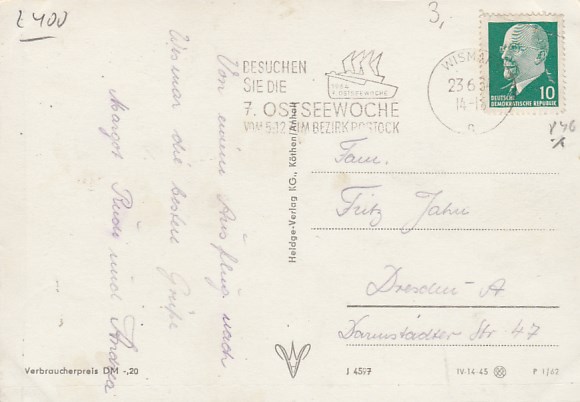 L 400
3,
BESUCHEN
SIE DIE
7. OSTSEEWOCHE
VOM 5.-12. IM BEZIRK ROSTOCK
1964
7. OSTSEEWOCHE
WISM
23.6.
14-1
DEUTSCHE
DEMOKRATISCHE REPUBLIK
10
Von einem Ausflug nach
Wismar die besten Grüße
Margot Rudi und Andrea
Heldge-Verlag KG., Köthen/Anhalt
Fam.
Fritz Jahn
Dresden-A
Darmstädter Str 47
Verbraucherpreis DM -,20
J 4597
IV-14-45
P 1/62